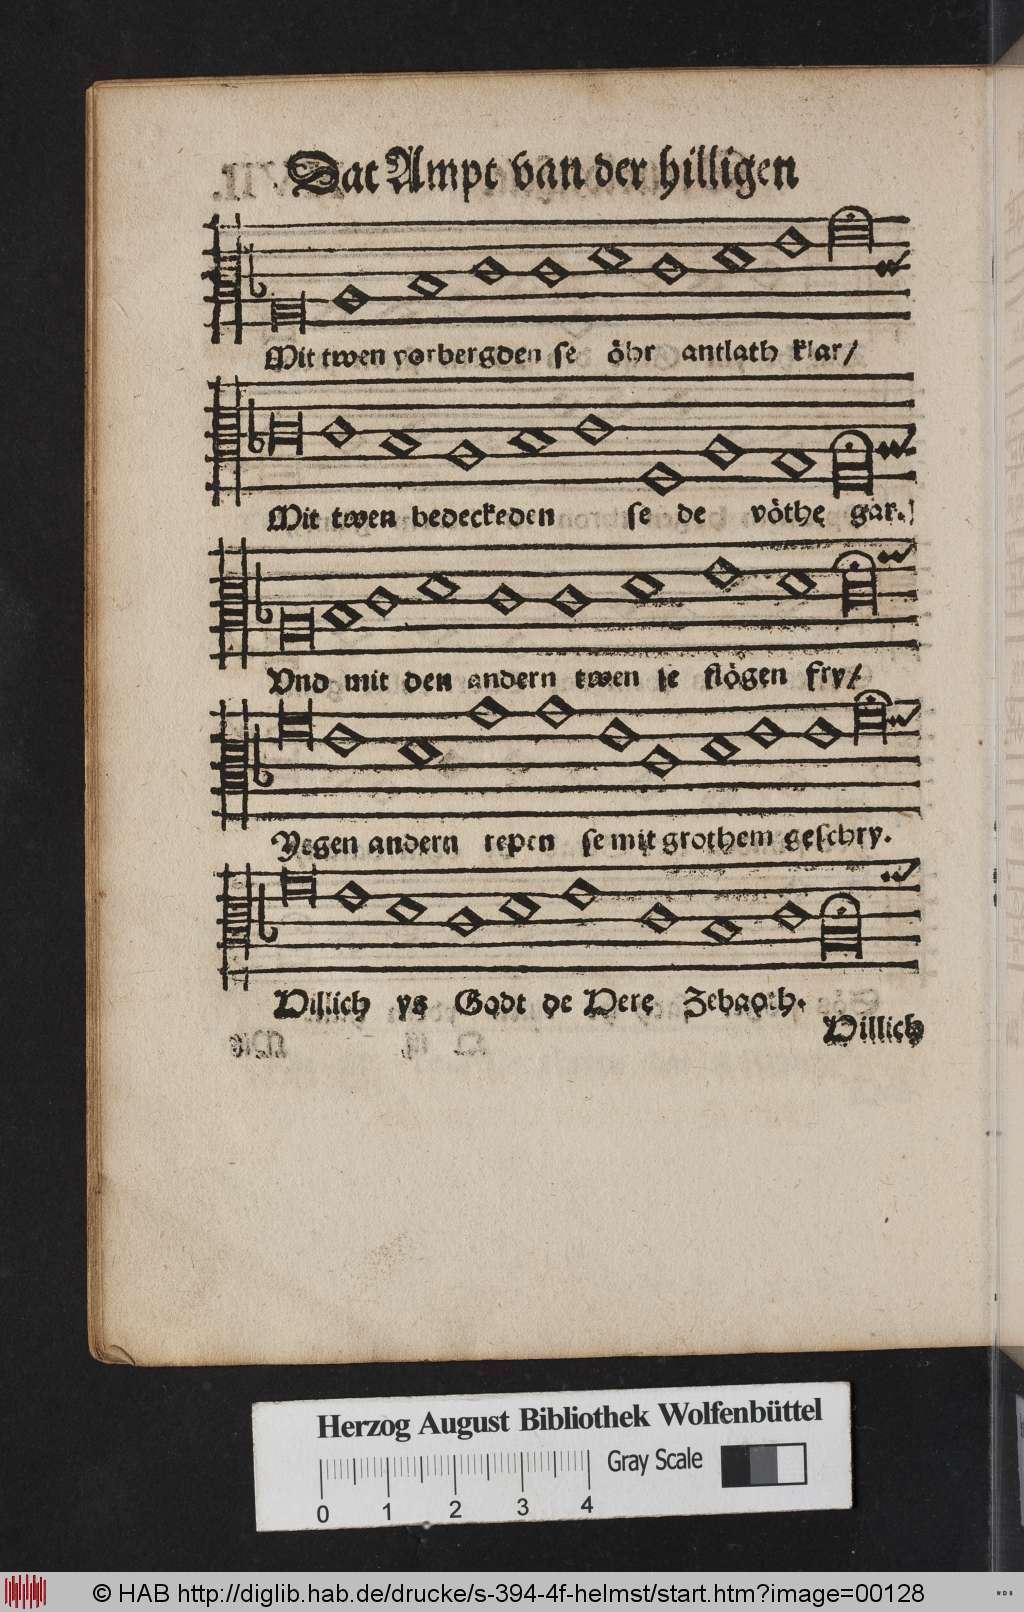 Dat Ampt van der hilligen
Mit twen vorbergden se öhr antlath klar/
Mit twen bedeckeden se de vöthe gar.
Vnd mit den andern twen se flögen fry/
Yegen andern repen se mit grothem geschry.
Hillich ys Godt de Here Zebaoth.
Hillich
Herzog August Bibliothek Wolfenbüttel
Gray Scale
0 1 2 3 4
© HAB http://diglib.hab.de/drucke/s-394-4f-helmst/start.htm?image=00128